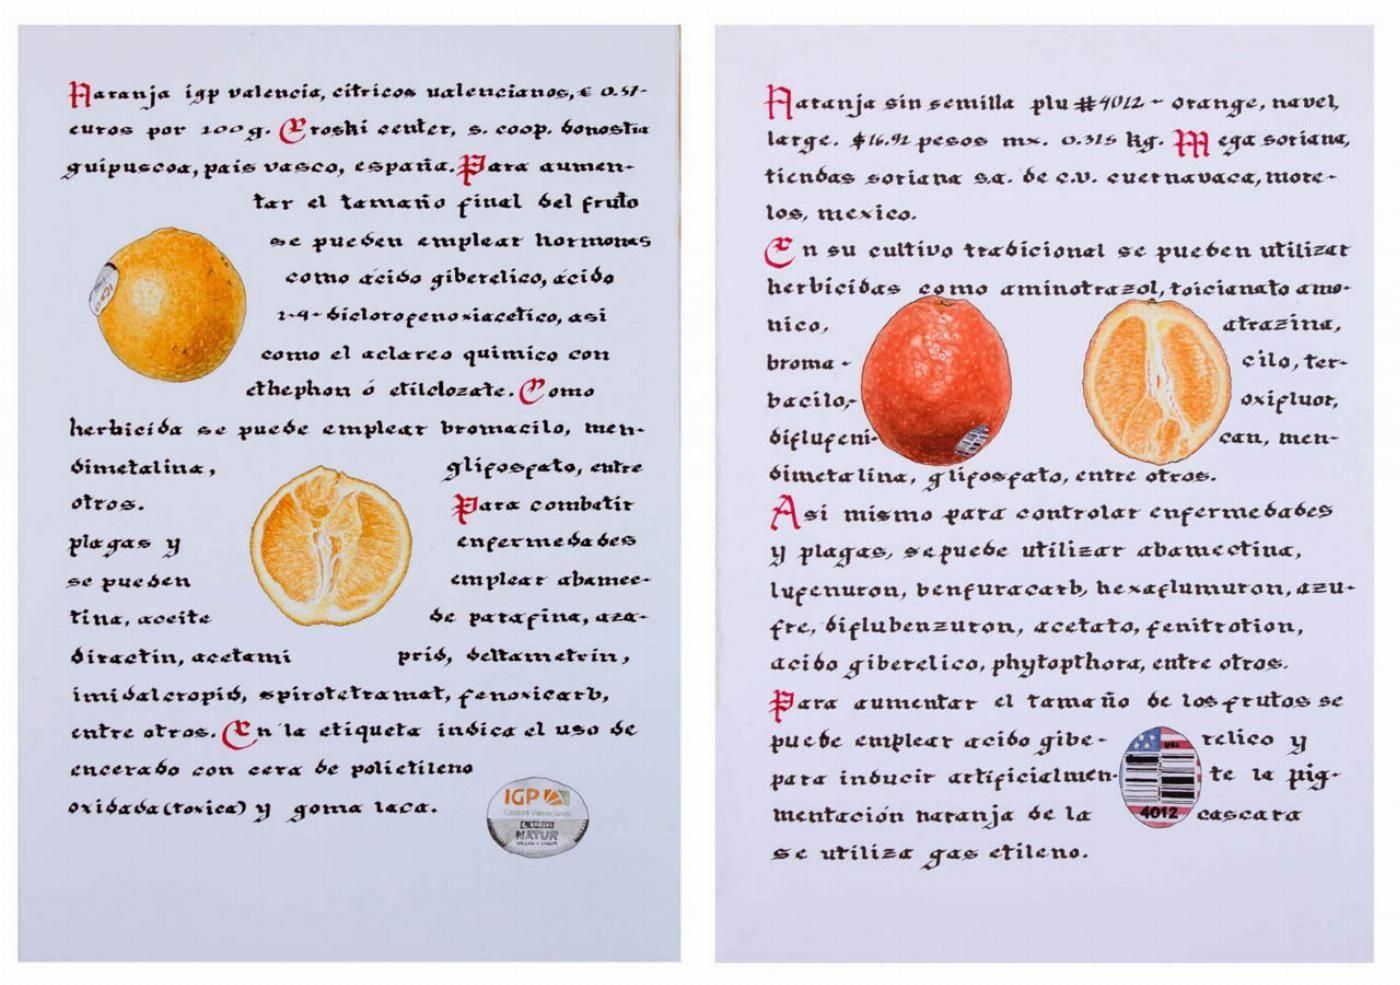 Naranja igp valencia, cítricos valencianos, € 0.51-
euros por 100 g. Eroski center, s. coop. donostia
guipuscoa, país vasco, españa. Para aumen-
tar el tamaño final del fruto
se pueden emplear hormonas
como ácido giberelico, ácido
2-4-diclorofenoxiacetico, asi
como el aclareo quimico con
ethephon ó etilclozate. Como
herbicida se puede emplear bromacilo, men-
dimetalina, glifosfato, entre
otros. Para combatir
plagas y enfermedades
se pueden emplear abamec-
tina, aceite de parafina, aza-
diractin, acetami prid, deltametrin,
imidalcropid, spirotetramat, fenoxicarb,
entre otros. En la etiqueta indica el uso de
encerado con cera de polietileno
oxidada (toxica) y goma laca.
IGP
NATUR
Naranja sin semilla plu #4012 - orange, navel,
large. $16.92 pesos mx. 0.315 kg. Mega soriana,
tiendas soriana s.a. de c.v. cuernavaca, more-
los, mexico.
En su cultivo tradicional se pueden utilizar
herbicidas como aminotrazol, toicianato amo-
nico, atrazina,
broma- cilo, ter-
bacilo, oxifluor,
diflufeni- can, men-
dimetalina, glifosfato, entre otros.
Asi mismo para controlar enfermedades
y plagas, se puede utilizar abamectina,
lufenuron, benfuracarb, hexaflumuron, azu-
fre, diflubenzuron, acetato, fenitrotion,
acido giberelico, phytopthora, entre otros.
Para aumentar el tamaño de los frutos se
puede emplear acido gibe- relico y
para inducir artificialmen- te la pig-
mentación naranja de la cascara
se utiliza gas etileno.
USA
4012